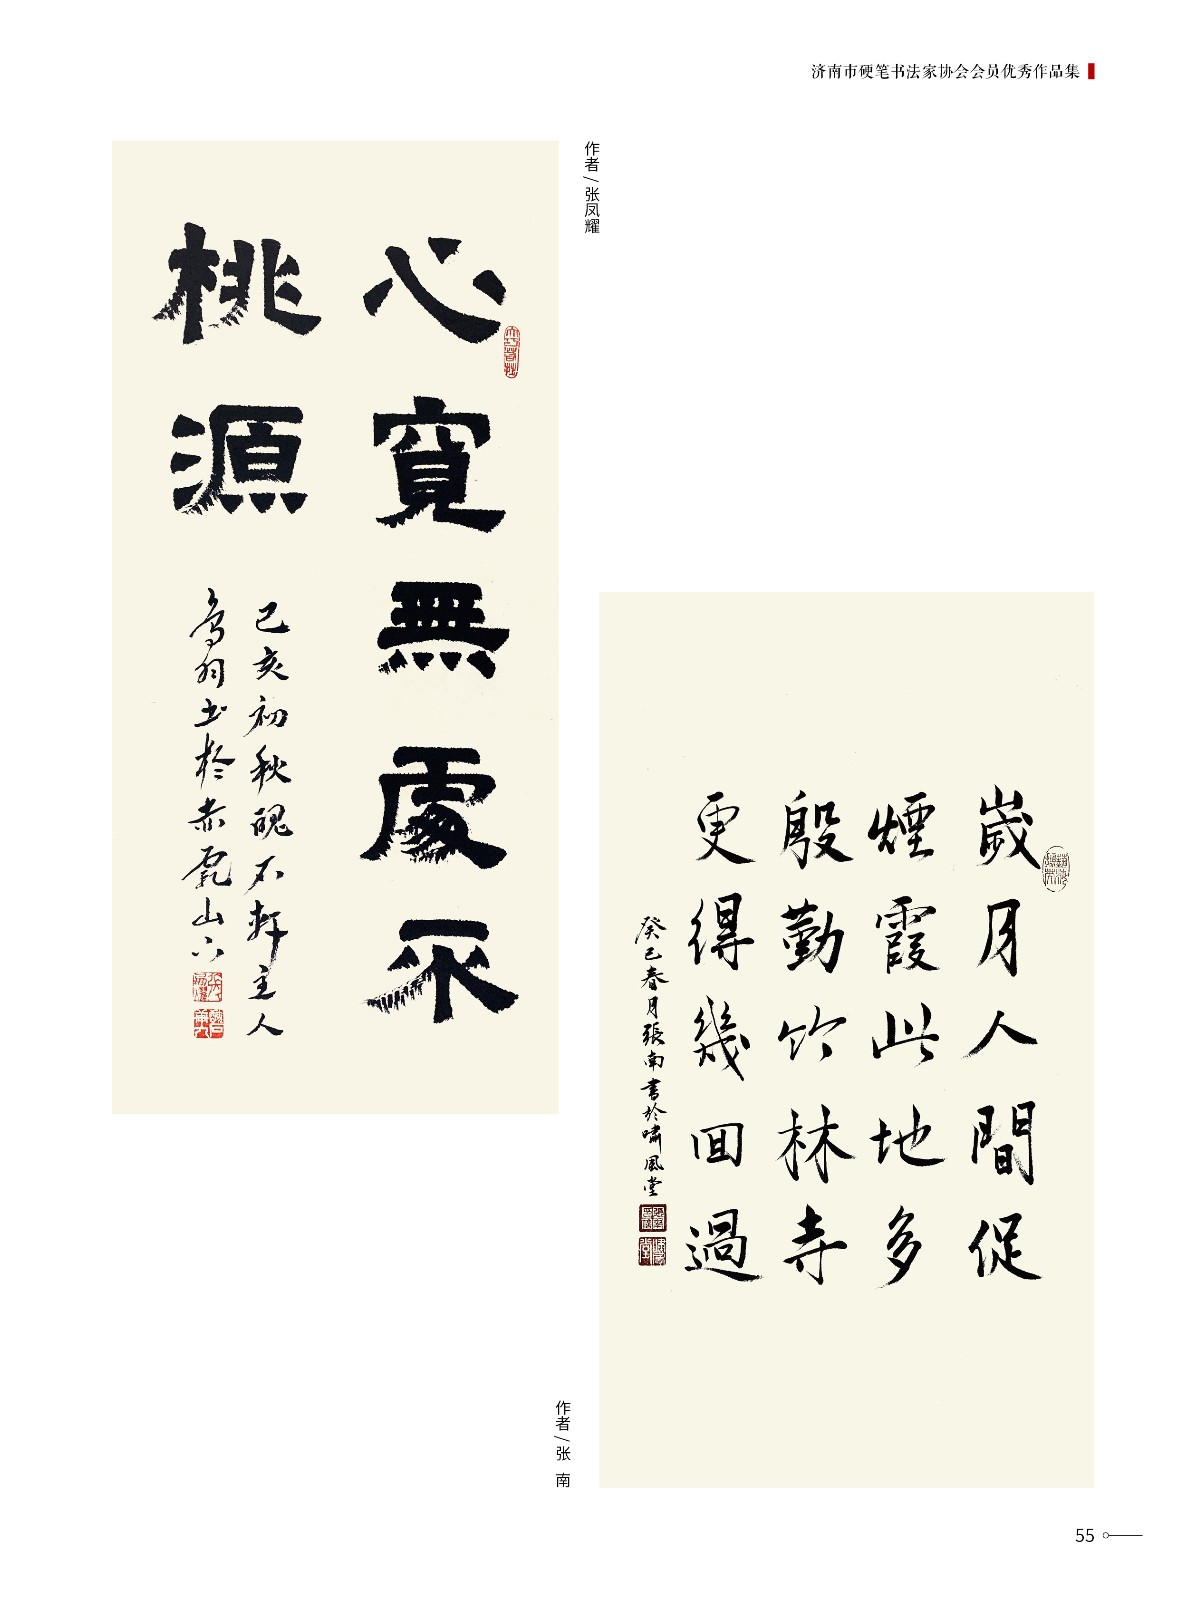 济南市硬笔书法家协会会员优秀作品集
作者/张凤耀
心寬無處不
桃源
己亥初秋醜石軒主人
鳥羽书於赤霞山下
歲月人間促
煙霞此地多
殷勤竹林寺
更得幾回過
癸巳春月張南書於嘯風堂
作者/张 南
55